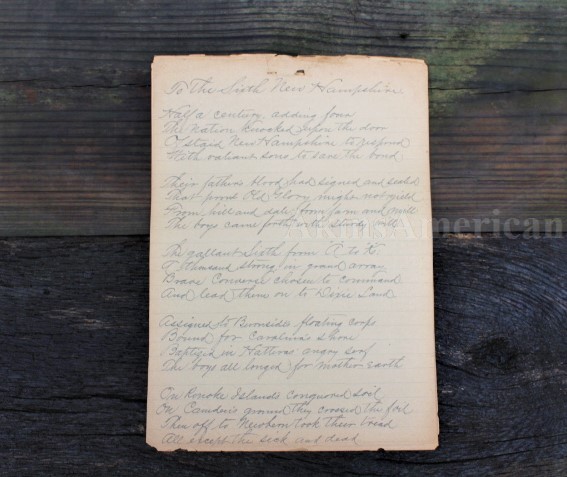 To The Sixth New Hampshire
Half a century adding four
The Nation knocked upon the door
Of staid New Hampshire to respond
With valiant sons to save the bond
Their fathers blood had signed and sealed
That proud Old Glory might not yield
From hill and dale, from farm and mill
The boys came forth with sturdy will
The gallant Sixth from "A" to "K"
A thousand strong in grand array
Brave Converse chosen to command
And lead them on to Dixie Land
Assigned to Burnsides floating corps
Bound for Carolina's shore
Baptized in Hatteras angry surf
The boys all longed for mother earth
On Ronoke Island's conquored soil
On Camden's ground they crossed the foil
Then off to Newbern took their tread
All except the sick and dead
American